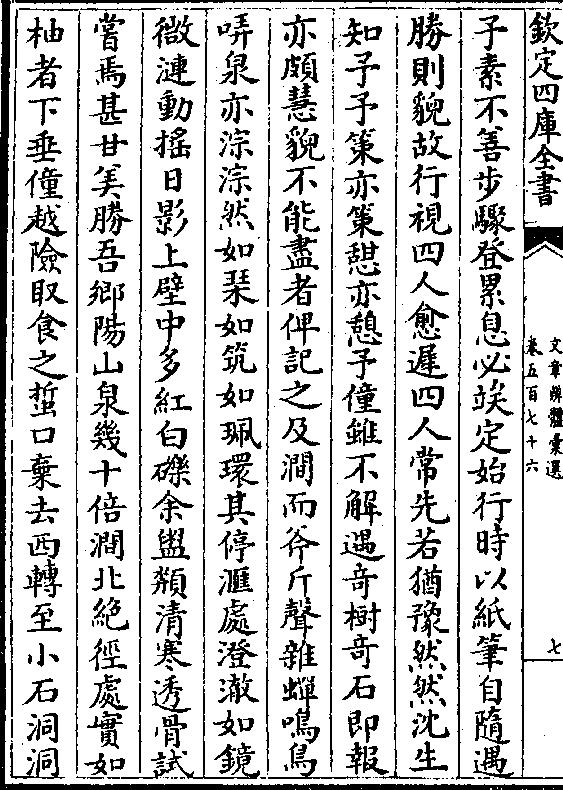 欽定四庫全書
文章辨體彙選
卷五百七十六
七
子素不善步驟登累息必竢定始行時以紙筆自隨遇
勝則貌故行視四人愈遲四人常先若猶豫然然沈生
知予予策亦策憇亦憩予僮雖不解遇竒樹竒石即報
亦頗慧貌不能盡者俾記之及澗而斧斤聲雜蟬鳴鳥
哢泉亦淙淙然如琹如筑如珮環其停滙處澄澈如鏡
微漣動摇日影上壁中多紅白礫余盥颒清寒透骨試
嘗焉甚甘美勝吾鄉陽山泉幾十倍澗北絶徑處實如
柚者下垂僮越險取食之蜇口棄去西轉至小石洞洞